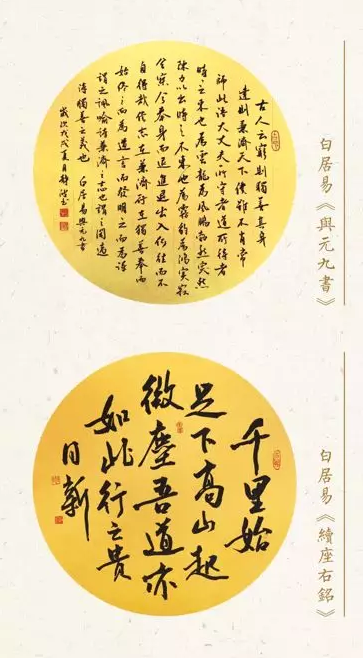 古人云窮則獨善其身
達則兼濟天下僕雖不肖常
師此語大丈夫所守者道所待者
時時之來也為雲龍為風鵬勃然突然
陳力以出時之不來也為霧豹為鴻冥寂
兮寥兮奉身而退進退出入何往而不
自得哉僕志在兼濟行在獨善奉而
始終之而為道言而發明之而為詩
謂之諷喻詩兼濟之志也謂之閒適
詩獨善之義也 白居易與元九書
歲次戊戌夏月書
白居易《與元九書》
千里始
足下高山起
微塵吾道亦
如此行之貴
日新
白居易《續座右銘》